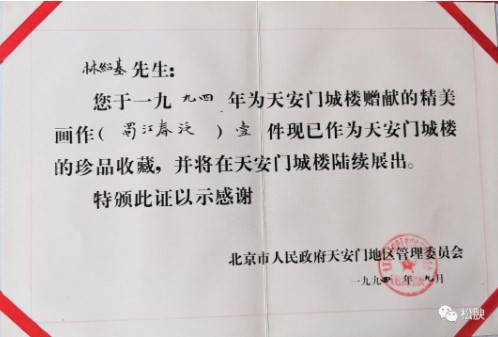 林绍基先生：
您于一九九四年为天安门城楼赠献的精美
画作（蜀江春泛）壹件现已作为天安门城楼
的珍品收藏，并将在天安门城楼陆续展出。
特颁此证以示感谢
北京市人民政府天安门地区管理委员会
一九九 年 九月
松腴